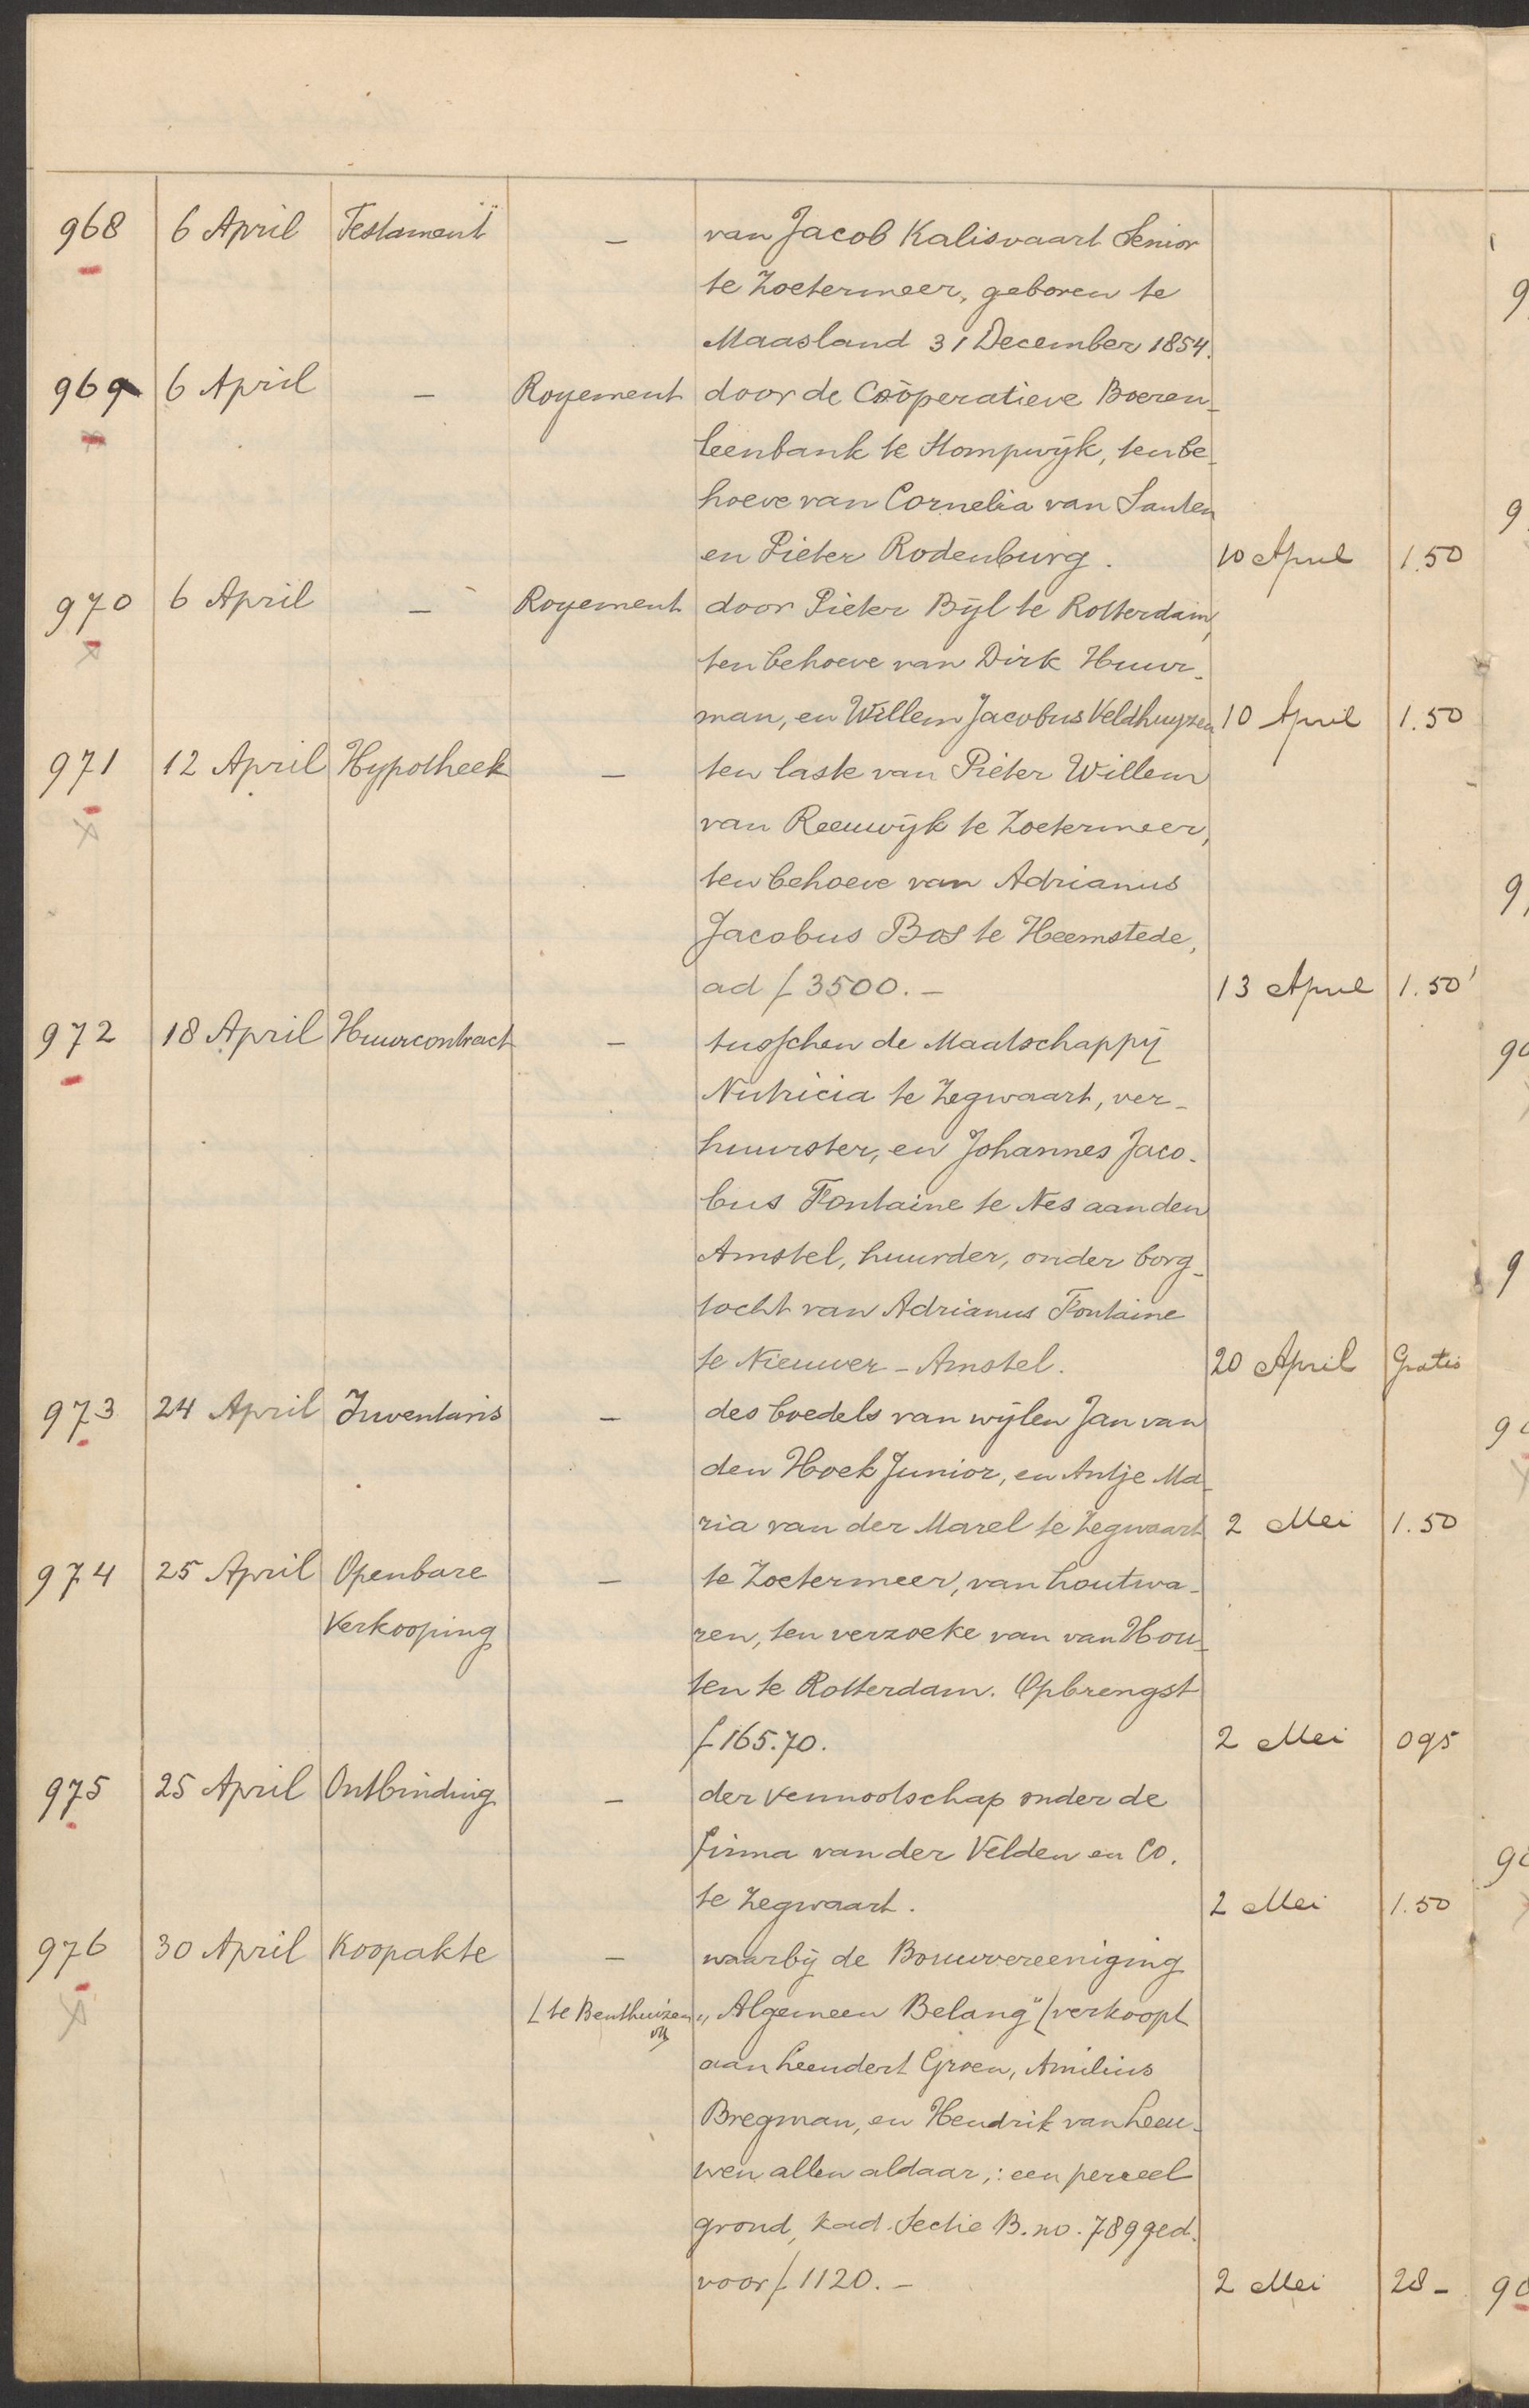 968 6 April Testament — van Jacob Kalisvaart Senior
te Zoetermeer, geboren te
Maasland 31 December 1854.
969 6 April — Royement door de Coöperatieve Boeren-
leenbank te Stompwijk, ten be-
hoeve van Cornelia van Santen
en Pieter Rodenburg. 10 April 1.50
970 6 April — Royement door Pieter Bijl te Rotterdam,
ten behoeve van Dirk Huur-
man, en Willem Jacobus Veldhuyzen 10 April 1.50
971 12 April Hypotheek — ten laste van Pieter Willem
van Reeuwijk te Zoetermeer,
ten behoeve van Adrianus
Jacobus Bos te Heemstede,
ad f 3500.— 13 April 1.50
972 18 April Huurcontract — tusschen de Maatschappij
Nutricia te Zegwaart, ver-
huurster, en Johannes Jaco-
bus Fontaine te Nes aan den
Amstel, huurder, onder borg-
tocht van Adrianus Fontaine
te Nieuwer-Amstel. 20 April Gratis
973 24 April Inventaris — des boedels van wijlen Jan van
den Hoek Junior, en Antje Ma-
ria van der Marel te Zegwaart 2 Mei 1.50
974 25 April Openbare — te Zoetermeer, van houtwa-
Verkooping ren, ten verzoeke van van Hou-
ten te Rotterdam. Opbrengst
f 165.70. 2 Mei 095
975 25 April Ontbinding — der vennootschap onder de
firma van der Velden en Co.
te Zegwaart. 2 Mei 1.50
976 30 April Koopakte — waarbij de Bouwvereeniging
[te Benthuizen „Algemeen Belang" [verkoopt
aan Leendert Groen, Amilius
Bregman, en Hendrik van Leeu-
wen allen aldaar,: een perceel
grond, kad. Sectie B. no. 789 ged.
voor f 1120.— 2 Mei 28-